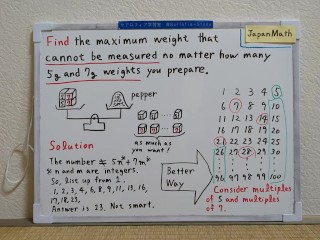 JapanMath
Find the maximum weight that
cannot be measured no matter how many
5g and 7g weights you prepare.
pepper
as much as
you want!
Solution
The number ≒ 5n※+7m※
※ n and m are integers.
So, list up from 1.
1, 2, 3, 4, 6, 8, 9, 11, 13, 16,
17, 18, 23,
Answer is 23. Not smart.
Better
Way
1 2 3 4 5
6 7 8 9 10
11 12 13 14 15
16 17 18 19 20
21 22 23 24 25
26 27 28 29 30
96 97 98 99 100
Consider multiples
of 5 and multiples
of 7.